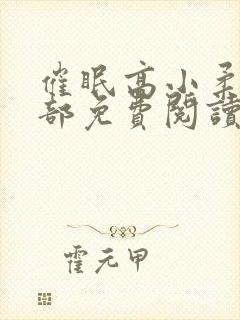 催眠高小柔
部免費閱讀
霍元甲